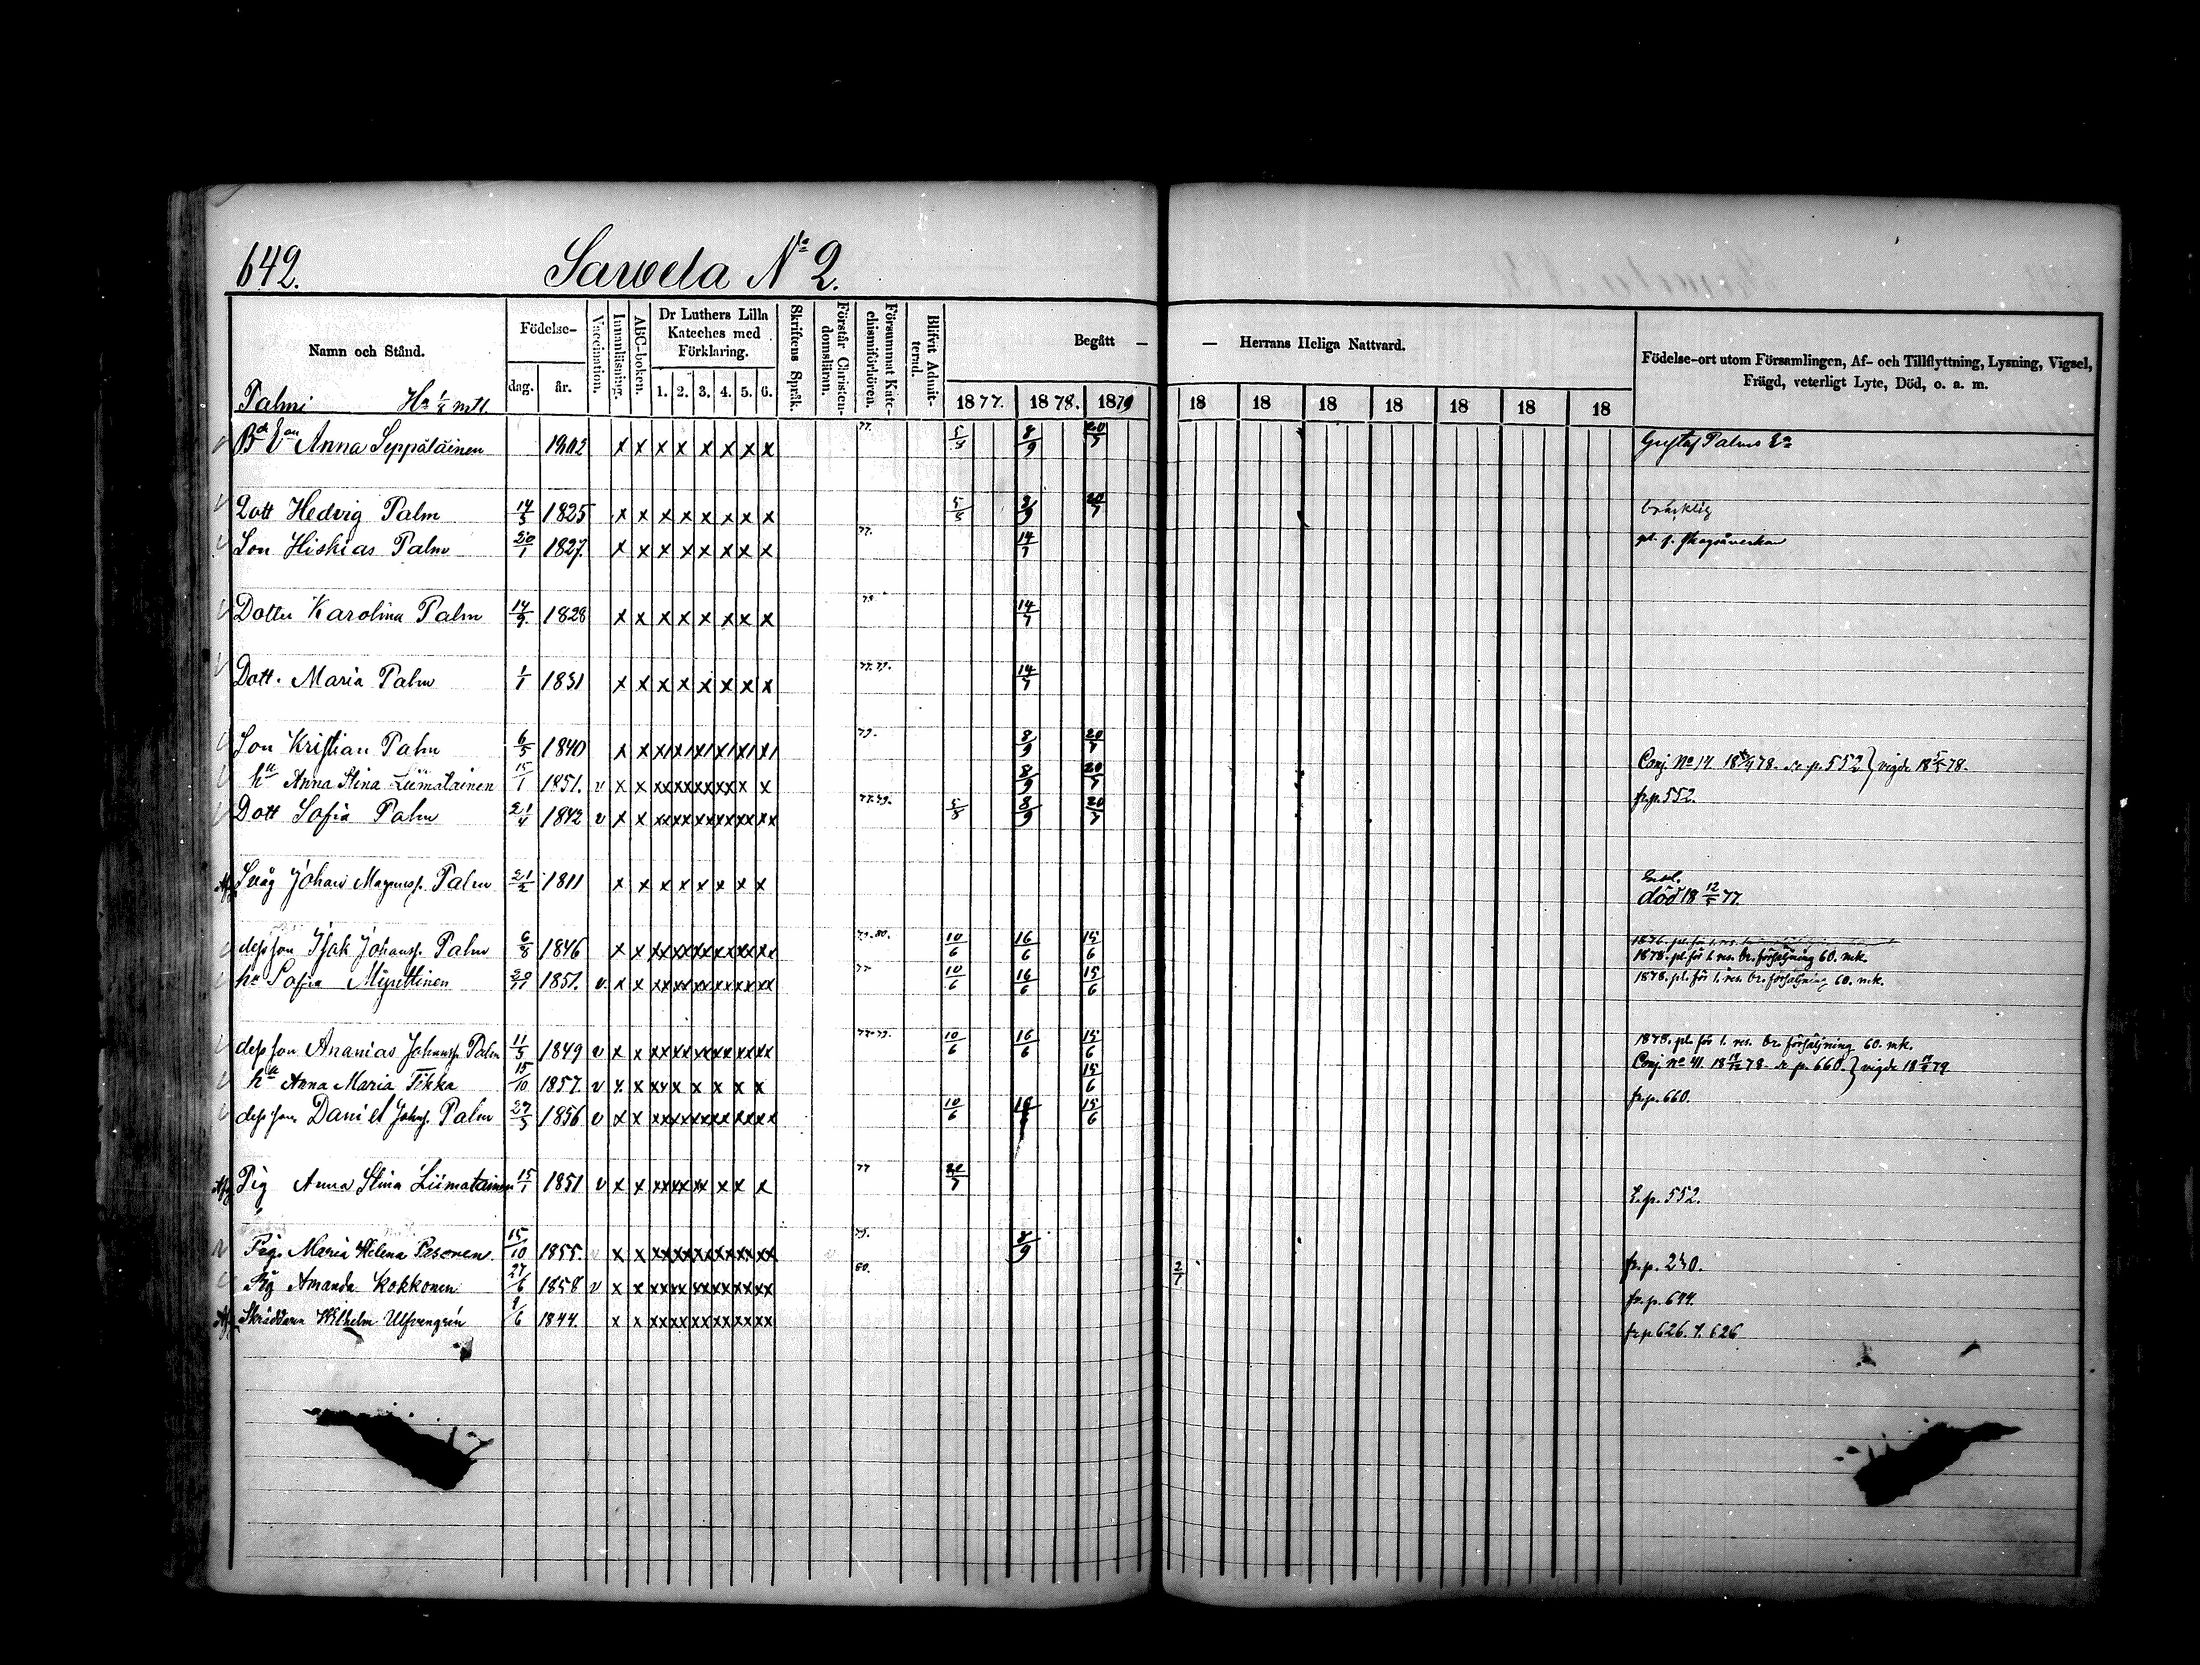 642. Sawela No 2.
Namn och Stånd.
Födelse-
dag.
år.
Vaccination.
Innanläsning.
ABC-boken.
Dr Luthers Lilla
Kateches med
Förklaring.
1. 2. 3. 4. 5. 6.
Skriftens Språk.
Förstår Christen-
domsläran.
Försummat Kate-
chismiförhören.
Blifvit Admit-
terad.
Begått — — Herrans Heliga Nattvard.
1877. 1878. 1879 18 18 18 18 18 18 18
Födelse-ort utom Församlingen, Af- och Tillflyttning, Lysning, Vigsel,
Frägd, veterligt Lyte, Död, o. a. m.
Palmi
Anna Seppäläinen x x x x x x x x 77. 5/8 8/9 20/7 Gustaf Palms
Dott Hedvig Palm 14/5 1825 x x x x x x x x 5/8 8/9 20/7 bräcklig
Son Hiskias Palm 20/1 1827. x x x x x x x x 77. 14/7
Dotter Karolina Palm 1828 x x x x x x x x 14/7
Dott. Maria Palm 1/1 1831 x x x x x x x x 77.79. 14/7
Son Kristian Palm 6/5 1840 79. 8/9 20/7 Conj. No 17. 78. p. 552 } vigde 18 78.
hu Anna Stina Liimatainen 15/1 1851. v x x xx xx xx xx x x 8/9 20/7 fr.p. 552.
Dott Sofia Palm 21/4 1842 v x x xx xx xx xx xx xx 77.79. 5/8 8/9 20/7
Svåg Johan Magnuss. Palm 21/2 1811 x x x x x x x x
död 18 12/5 77.
dess son Isak Johanss. Palm 6/8 1846 x x xx xx xx xx xx xx 79.80. 10/6 16/6 15/6
1878. pl. för 1. res. br. försäljning 60. mk.
hu Sofia Myrttinen 1851. v. x x xx xx xx xx xx xx 77 10/6 16/6 15/6 1878. pl. för 1. res. br. försäljning 60. mk.
dess son Ananias Johanss. Palm 11/5 1849 v x x xx xx xx xx xx xx 77.79. 10/6 16/6 15/6 1878. pl. för 1. res. br. försäljning 60. mk.
Conj. No 41. 78. p. 660. } vigde 18 79
hu Anna Maria Tikka 15/10 1857. v x x xx x x x x x 15/6 fr.p. 660.
dess son Daniel Johs. Palm 27/5 1856 v x x xx xx xx xx xx xx 10/6 15/6
Pig Anna Stina Liimatainen 15/1 1851 v x x xx xx xx x x x 77 t.p. 552.
Pig. Maria Helena Pesonen. 15/10 1855. x x xx xx xx xx xx xx 79. 8/9 fr.p. 230.
Pig Amanda Kokkonen 27/6 1858 v x x xx xx xx xx xx xx 80. 2/7 fr.p. 644.
Skräddaren Wilhelm Ulfvengren 9/6 1844. x x xx xx xx xx xx xx fr.p. 626. t. 626